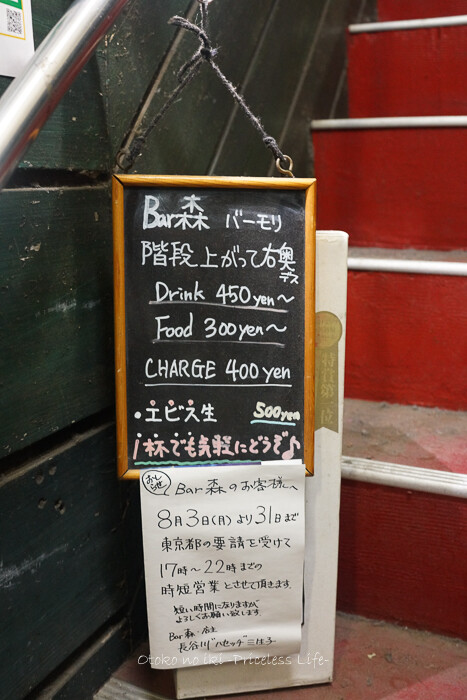 Bar森 バーモリ
階段上がって右奥デス
Drink 450yen〜
Food 300yen〜
CHARGE 400yen
・エビス生 500yen
1杯でも気軽にどうぞ♪
おしらせ
Bar森のお客様へ
8月3日(月)より31日まで
東京都の要請を受けて
17時〜22時までの
時短営業とさせて頂きます.
短い時間になりますが
よろしくお願い致します.
Bar森・店主
長谷川"ハセッチ"三佳子
特賞第一位
Otoko no iki -Priceless Life-